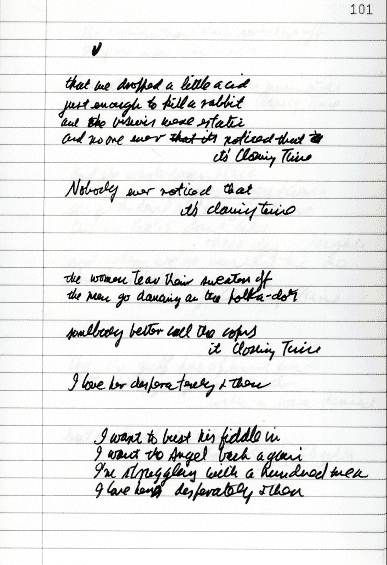 101
that we dropped a little acid
just enough to kill a rabbit
and the visions were
and no one ever that its noticed that
it's Closing Time
Nobody ever noticed that
it's closing time
the women tear their sweaters off
the men go dancing on the polka-dots
somebody better call the cops
it Closing Time
I love her desperately & then
I want to bust his fiddle in
I want the Angel back again
I'm struggling with a hundred men
I love her desperately & then